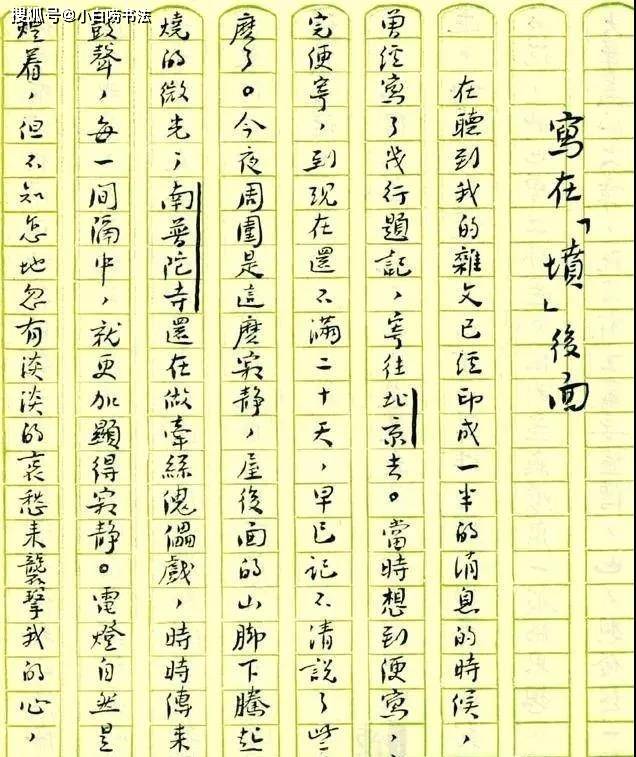 搜狐号@小白唠书法
寫在「墳」後面
在聽到我的雜文已經印成一半的消息的時候，
曾經寫了幾行題記，寄往北京去。當時想到便寫，
完便寄，到現在還不滿二十天，早已記不清說了些
麼了。今夜周圍是這麼寂靜，屋後面的山脚下騰起
燒的微光；南普陀寺還在做牽絲傀儡戲，時時傳来
鼓聲，每一間隔中，就更加顯得寂靜。電燈自然是
煌着，但不知怎地忽有淡淡的哀愁来襲擊我的心，